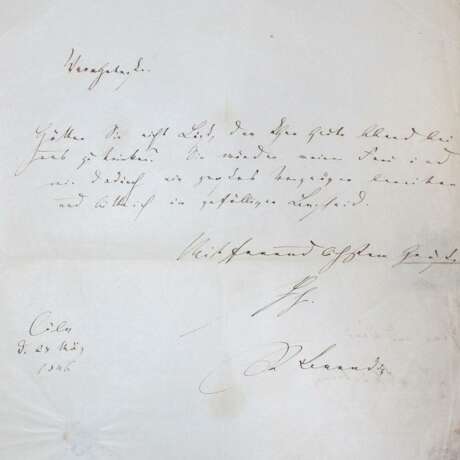 Hätten Sie nicht Lust, den Thee heute Abend bei
uns zu trinken? Sie würden meiner Frau und
mir dadurch ein großes Vergnügen bereiten
und bitte ich um gefälligen Bescheid.
Mit freundlichsten Gruß
Ihr
Cöln
d. 28 März
1846